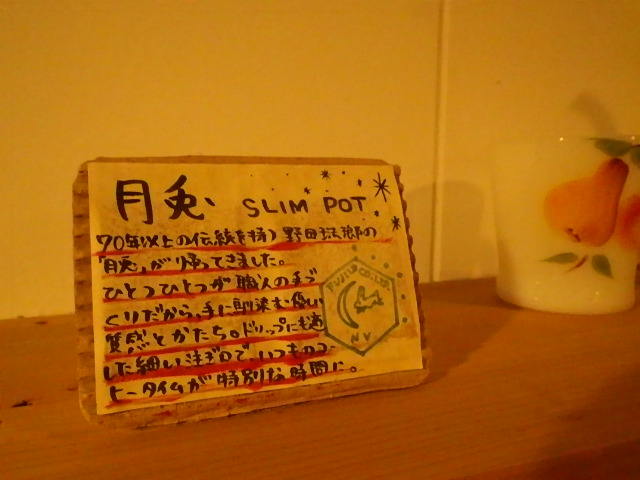 月兎 SLIM POT
70年以上の伝統を持つ野田琺瑯の
「月兎」が帰ってきました。
ひとつひとつが職人の手づ
くりだから、手に馴染む優しい
質感とかたち。ドリップにも適
した細い注ぎ口で、いつものコー
ヒータイムが特別な時間に。
FUJII CO.,LTD.
NV